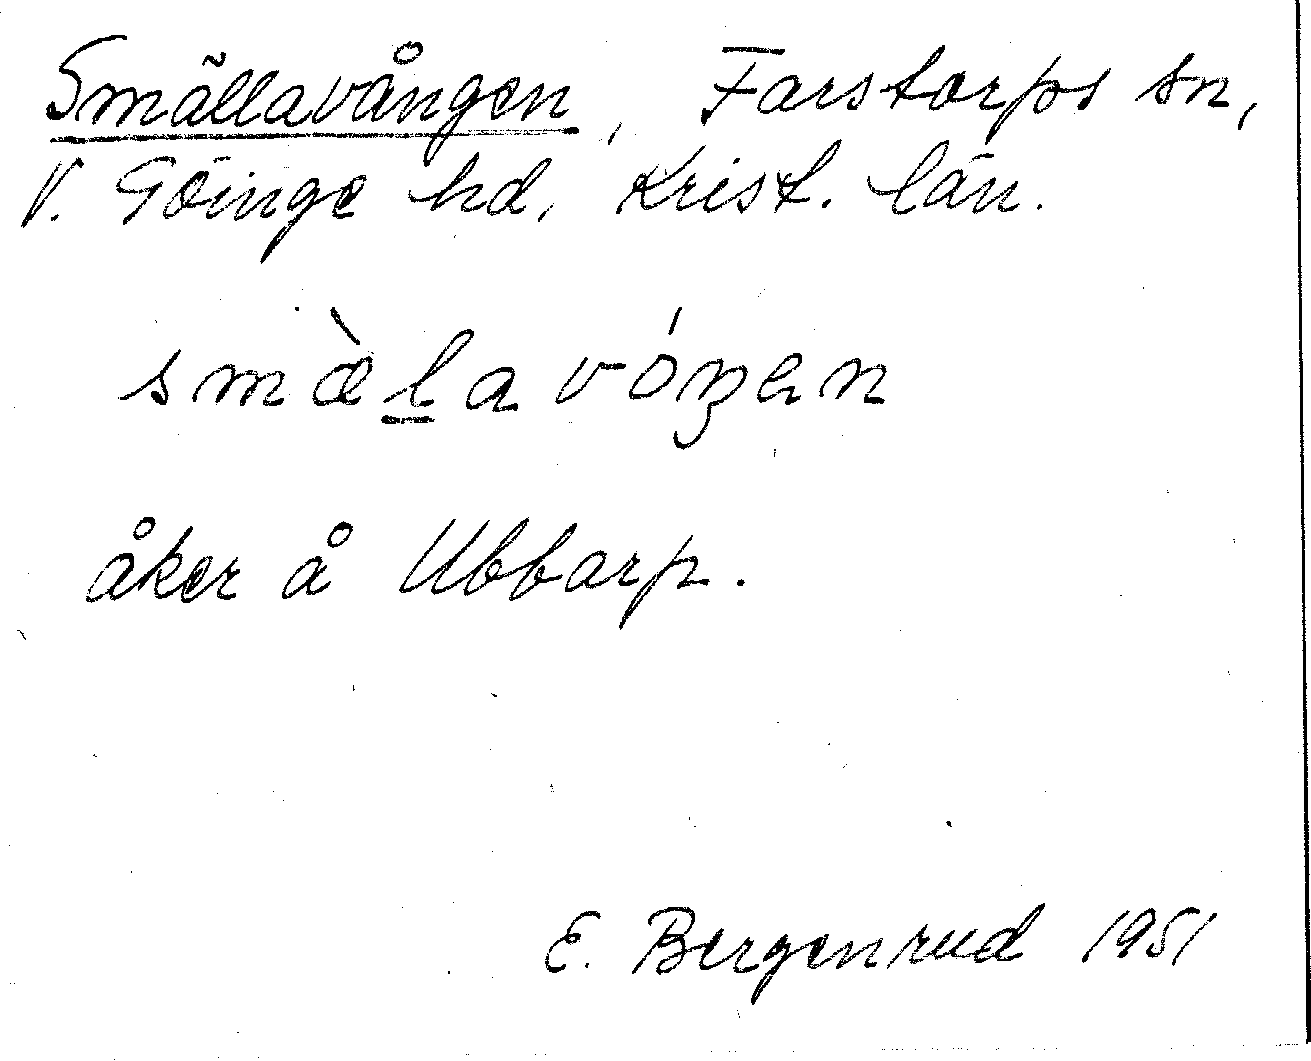 Smällavången, Farstorps sn,
V. Göinge hd, Krist. län.
smæ̀l̲avóŋen
åker å Ubbarp.
E. Bergenrud 1951